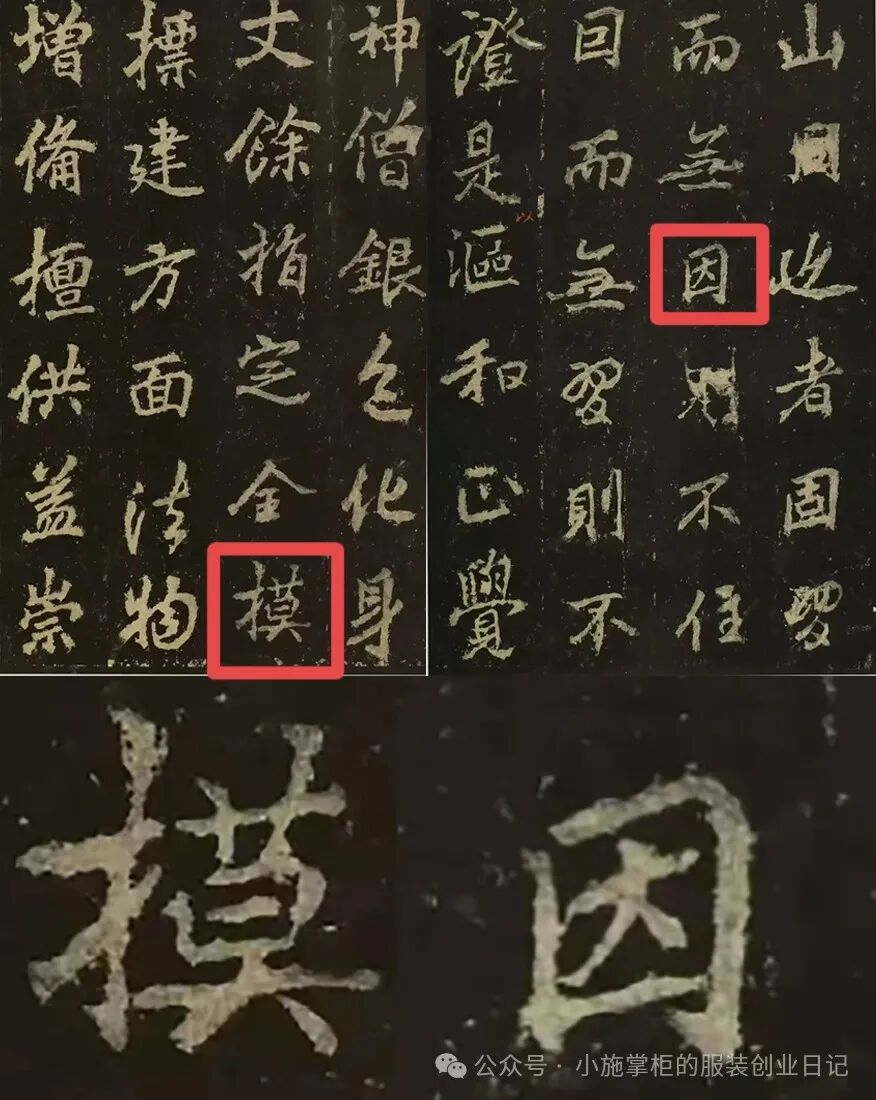 山者固習
而無因則不住
回而無習則不
證是漚和正覺
以
神僧銀色化身
丈餘指定全摸
摽建方面法物
增備擅供益崇
摸因
公众号 · 小施掌柜的服装创业日记